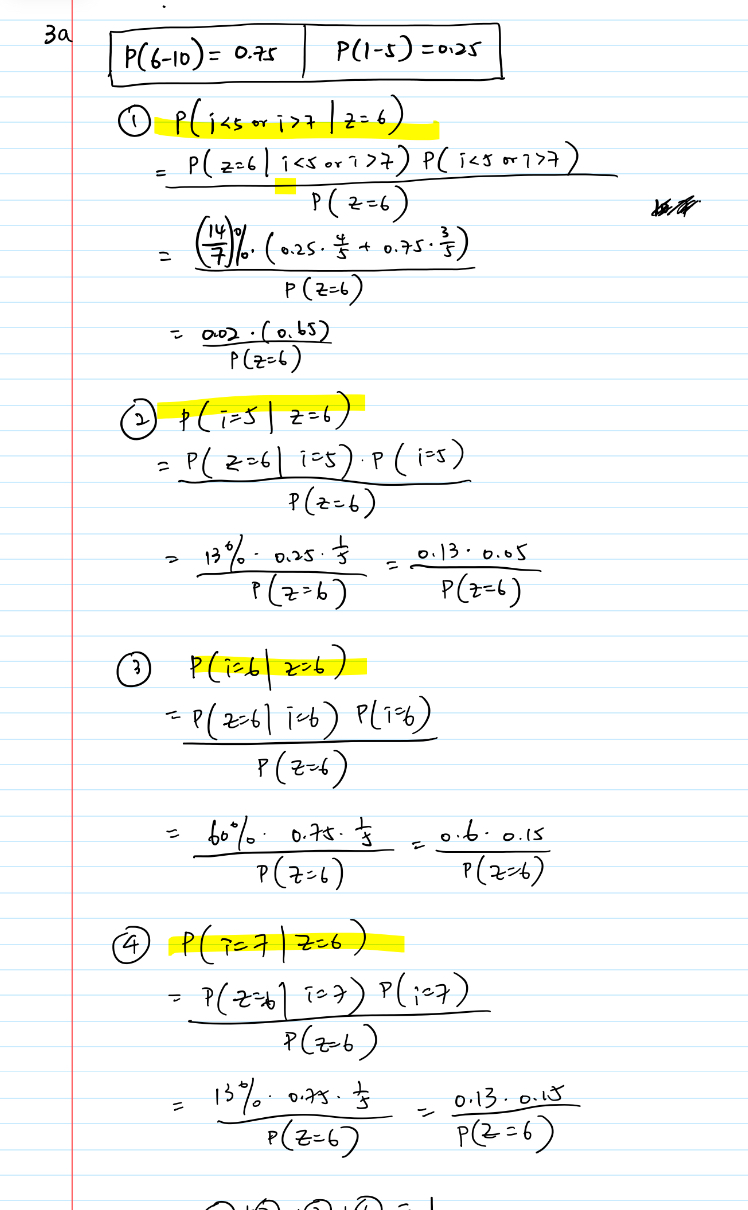 3a
P(6-10) = 0.75 P(1-5) = 0.25
① P(i<5 or i>7 | z=6)
= P(z=6 | i<5 or i>7) P(i<5 or i>7)
P(z=6)
= (14/7)%. (0.25 · 4/5 + 0.75 · 3/5)
P(z=6)
= 0.02 · (0.65)
P(z=6)
② P(i=5 | z=6)
= P(z=6 | i=5) · P(i=5)
P(z=6)
= 13% · 0.25 · 1/5 = 0.13 · 0.05
P(z=6) P(z=6)
③ P(i=6 | z=6)
= P(z=6 | i=6) P(i=6)
P(z=6)
= 60% · 0.75 · 1/5 = 0.6 · 0.15
P(z=6) P(z=6)
④ P(i=7 | z=6)
= P(z=6 | i=7) P(i=7)
P(z=6)
= 13% · 0.75 · 1/5 = 0.13 · 0.15
P(z=6) P(z=6)